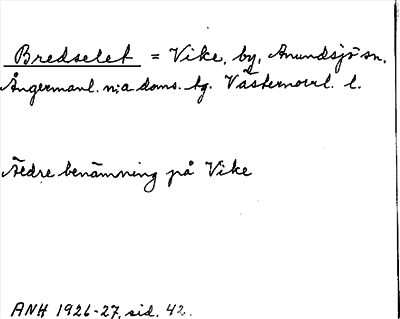 Bredselet = Vike, by, Anundsjö sn.
Ångermanl. n:a doms. tg. Västernorrl. l.
Äldre benämning på Vike
ANH 1926-27, sid. 42.